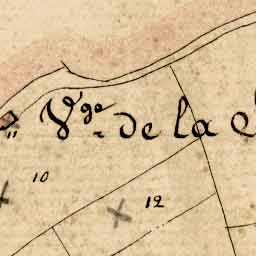 V.ge de la
10
12